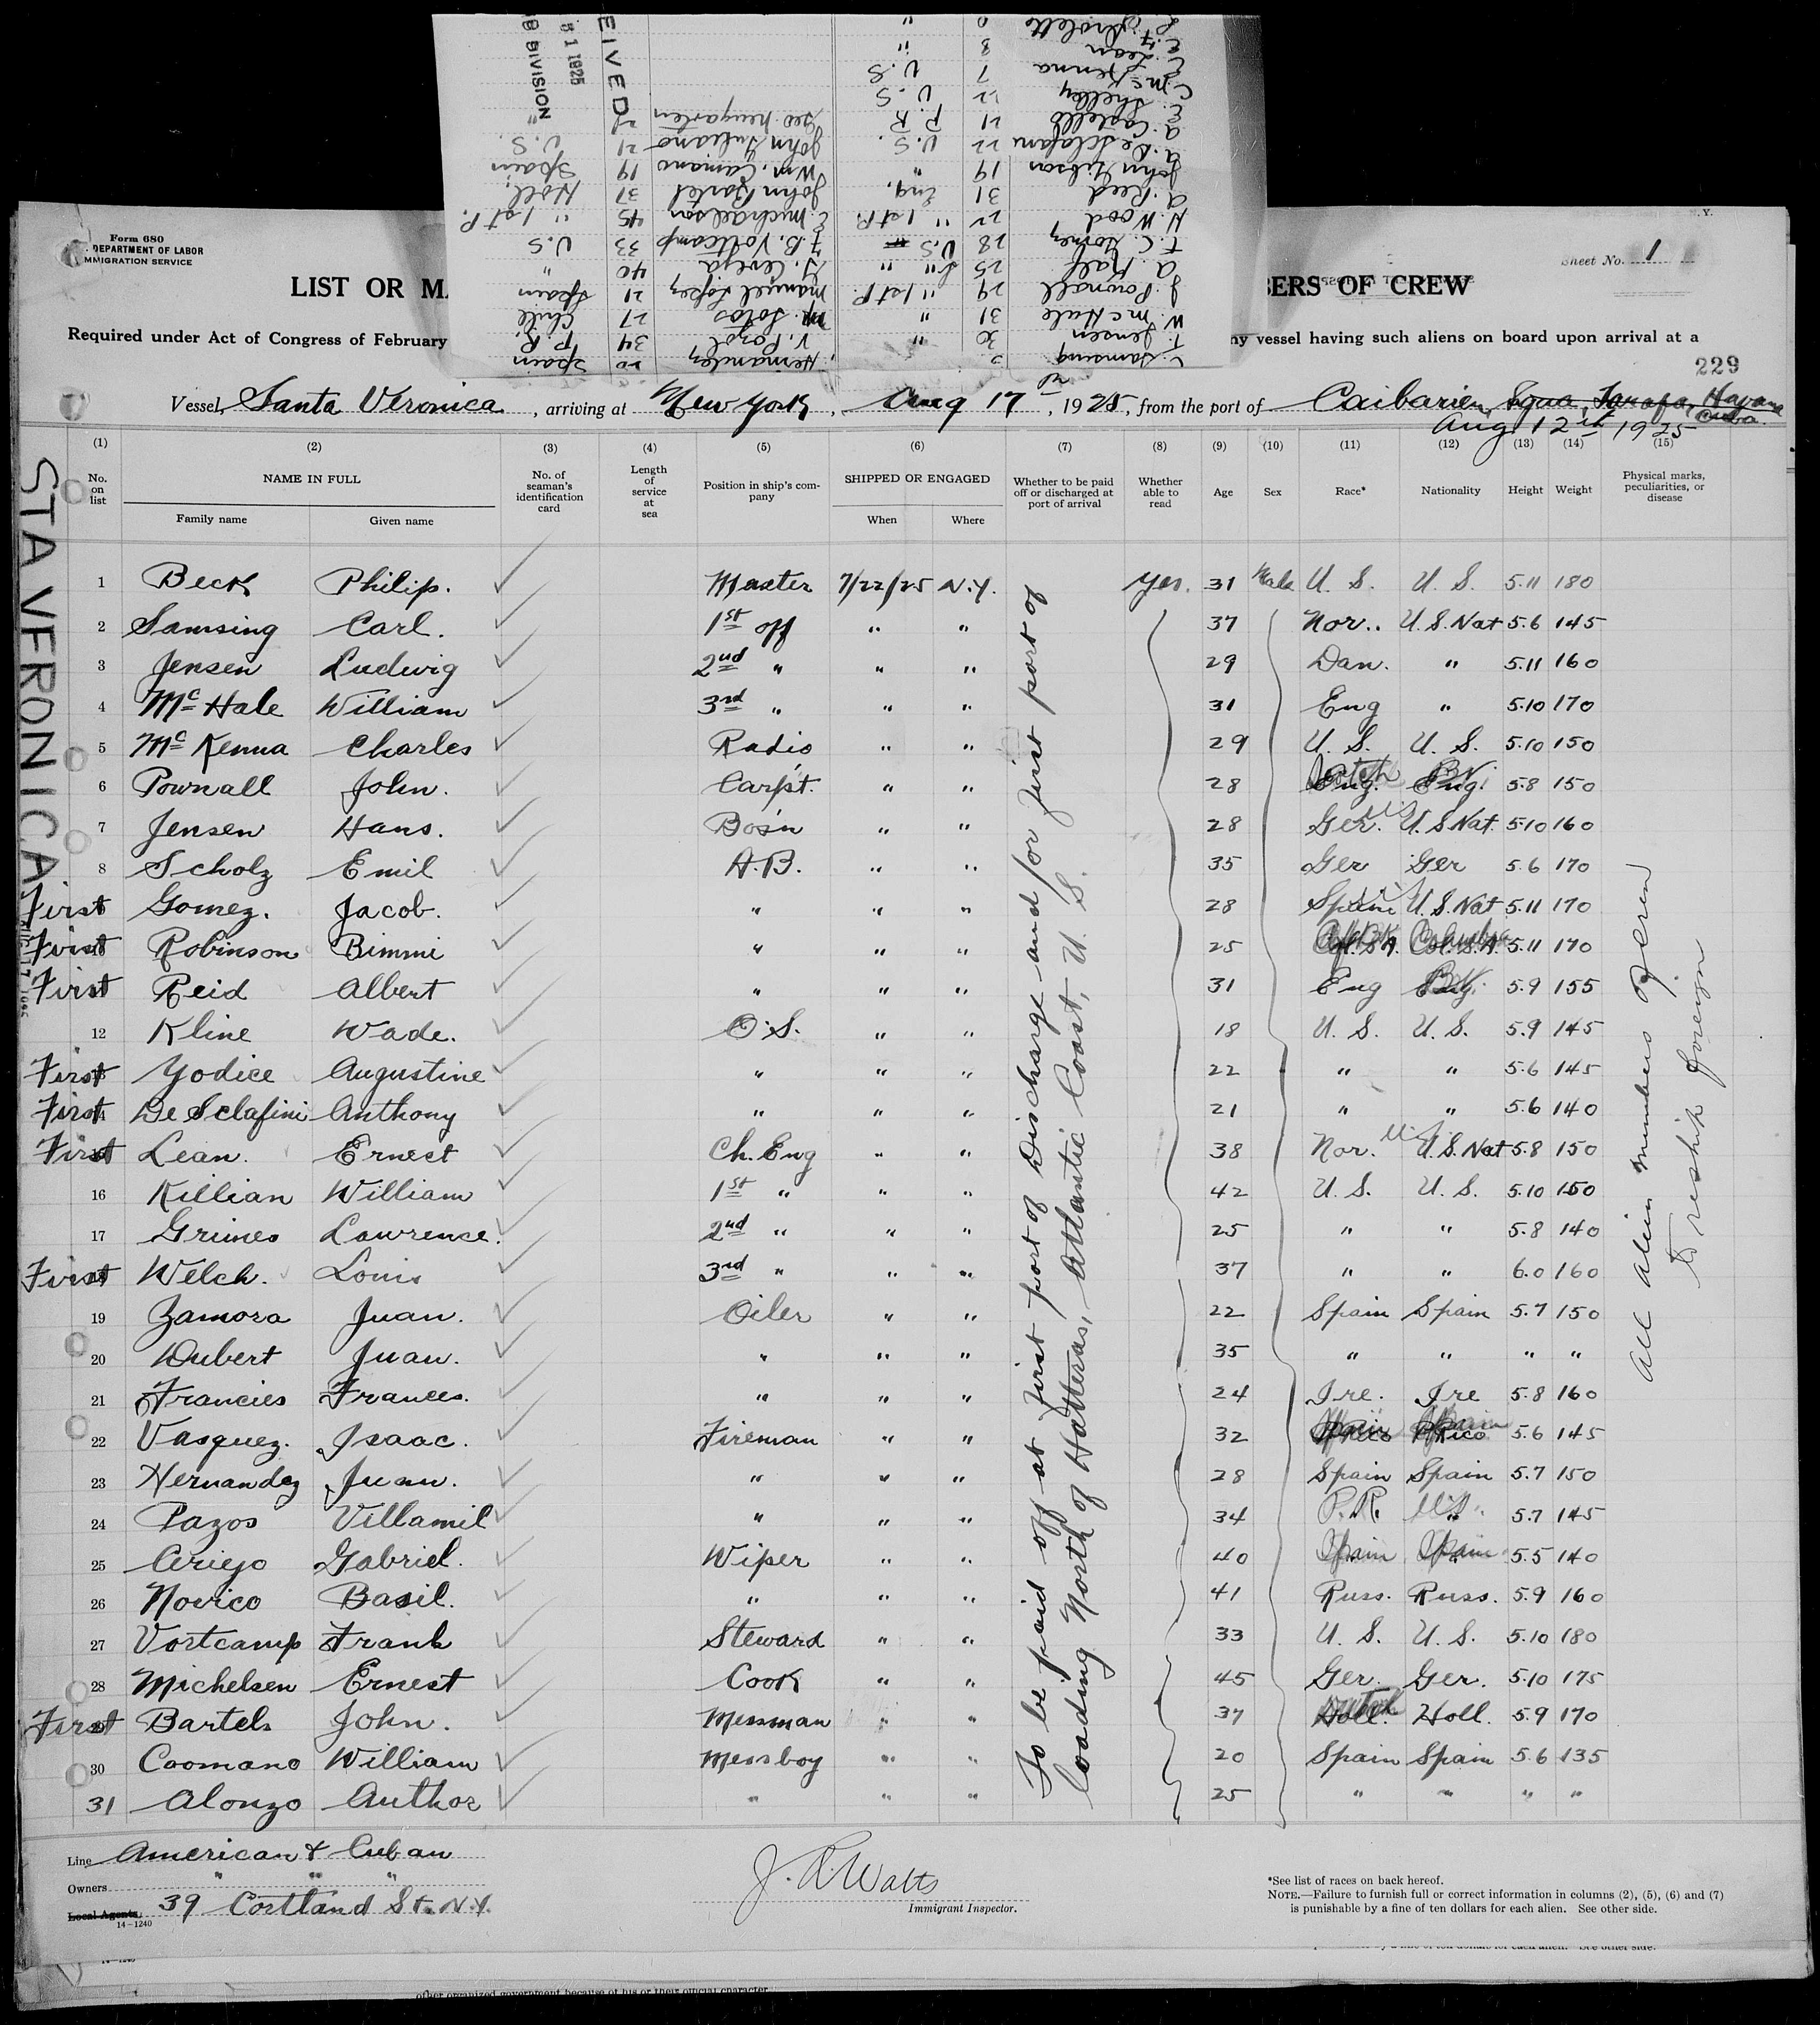 Form 680
DEPARTMENT OF LABOR
IMMIGRATION SERVICE
Sheet No. 1
LIST OR MA
BERS OF CREW
Required under Act of Congress of February
ny vessel having such aliens on board upon arrival at a
229
Vessel, Santa Veronica, arriving at New York, Aug 17, 1925, from the port of Caibarien, Squa, Tarafa, Havana Cuba.
Aug 12th 1925
(1) (2) (3) (4) (5) (6) (7) (8) (9) (10) (11) (12) (13) (14) (15)
No. on list NAME IN FULL No. of seaman's identification card Length of service at sea Position in ship's company SHIPPED OR ENGAGED Whether to be paid off or discharged at port of arrival Whether able to read Age Sex Race* Nationality Height Weight Physical marks, peculiarities, or disease
Family name Given name When Where
STA VERONICA
1 Beck Philip. Master 7/22/25 N.Y. Yes. 31 Male U. S. U. S. 5.11 180
2 Samsing Carl. 1st off " " 37 Nor.. U.S. Nat 5.6 145
3 Jensen Ludwig 2nd " " " 29 Dan. " 5.11 160
4 Mc Hale William 3rd " " " 31 Eng " 5.10 170
5 Mc Kenna Charles Radio " " 29 U. S. U. S. 5.10 150
6 Pownall John. Carp't. " " 28 Scotch Eng. Br. Eng. 5.8 150
7 Jensen Hans. Bos'n " " 28 Ger. U. S Nat. 5.10 160
8 Scholz Emil A.B. " " 35 Ger Ger 5.6 170
First Gomez. Jacob. " " " 28 Spain U. S. Nat 5.11 170
First Robinson Bimmi " " " 25 Col. S. A. 5.11 170
First Reid Albert " " " 31 Eng Eng. 5.9 155
12 Kline Wade. O.S. " " 18 U. S. U. S. 5.9 145
First Yodice Augustine " " " 22 " " 5.6 145
First De Sclafini Anthony " " " 21 " " 5.6 140
First Lean. Ernest Ch. Eng " " 38 Nor. U. S. Nat 5.8 150
16 Killian William 1st " " " 42 U. S. U. S. 5.10 150
17 Grimes Lawrence. 2nd " " " 25 " " 5.8 140
First Welch. Louis 3rd " " " 37 " " 6.0 160
19 Zamora Juan. Oiler " " 22 Spain Spain 5.7 150
20 Dubert Juan. " " " 35 " " " "
21 Francies Frances. " " " 24 Ire. Ire 5.8 160
22 Vasquez. Isaac. Fireman " " 32 P Rico Spain P Rico 5.6 145
23 Hernandez Juan. " " " 28 Spain Spain 5.7 150
24 Pazos Villamil " " " 34 P. R. U.S. 5.7 145
25 Ceriejo Gabriel. Wiper " " 40 Spain Spain 5.5 140
26 Novico Basil. " " " 41 Russ. Russ. 5.9 160
27 Vortcamp Frank Steward " " 33 U. S. U. S. 5.10 180
28 Michelsen Ernest Cook " " 45 Ger. Ger. 5.10 175
First Bartels John. Messman " " 37 Dutch Holl. Holl. 5.9 170
30 Coomano William Messboy " " 20 Spain Spain 5.6 135
31 Alonzo Author " " " 25 " " " "
To be paid off at first port of Discharge and/or first port of
loading North of Hatteras, Atlantic Coast, U. S.
All alien members Ocean
to reship foreign
Line American & Cuban
Owners " " "
Local Agents 39 Cortland St. N.Y.
14-1240
J. R. Watts
Immigrant Inspector.
*See list of races on back hereof.
NOTE.—Failure to furnish full or correct information in columns (2), (5), (6) and (7)
is punishable by a fine of ten dollars for each alien. See other side.
other organized government because of his or their official character
C. Samsing
F. Jensen 30 "
W. McHale 31 "
J. Pownall 29 " 1st P.
A. Ralf 25 " "
F. C. Gomez 28 U.S
H. Wood 22 " 1st P.
A. Reed 31 Eng.
John Gibson 19 "
A. De Sclafani 22 U.S.
E. Costello 21 P.R
E. Shelley 22 U.S
C. McKenna 7 U.S
E. Lean 8 "
Hernandez 20 Spain
V. Pozol 34 P.R.
M. Sotos 27 Chile
Manuel Lopez 21 Spain
G. Cereja 40 "
F.B. Vortcamp 33 U.S
E. Michaelson 45 " 1st P.
John Bartel 37 Holl.
Wm. Camano 19 Spain
John Juliano 21 U.S.
Geo. Neugarten 21 "
EIVED
1 1925
DIVISION